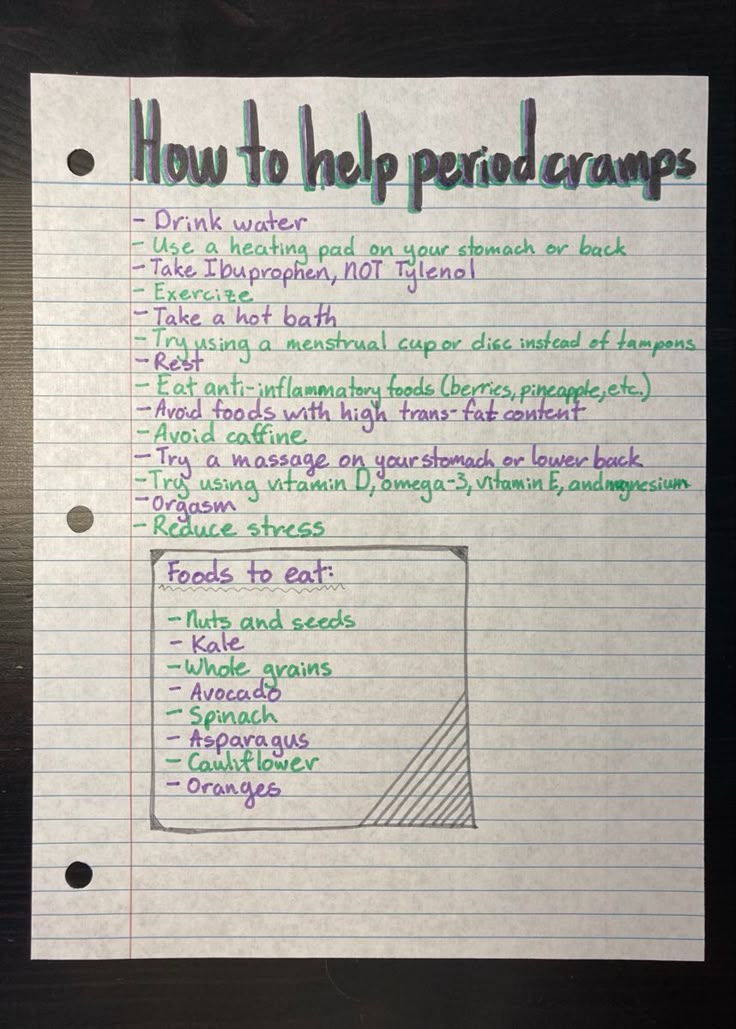 How to help period cramps
- Drink water
- Use a heating pad on your stomach or back
- Take Ibuprophen, NOT Tylenol
- Exercize
- Take a hot bath
- Try using a menstrual cup or disc instead of tampons
- Rest
- Eat anti-inflammatory foods (berries, pineapple, etc.)
- Avoid foods with high trans-fat content
- Avoid caffine
- Try a massage on your stomach or lower back
- Try using vitamin D, omega-3, vitamin E, and magnesium
- Orgasm
- Reduce stress
Foods to eat:
- Nuts and seeds
- Kale
- Whole grains
- Avocado
- Spinach
- Asparagus
- Cauliflower
- Oranges